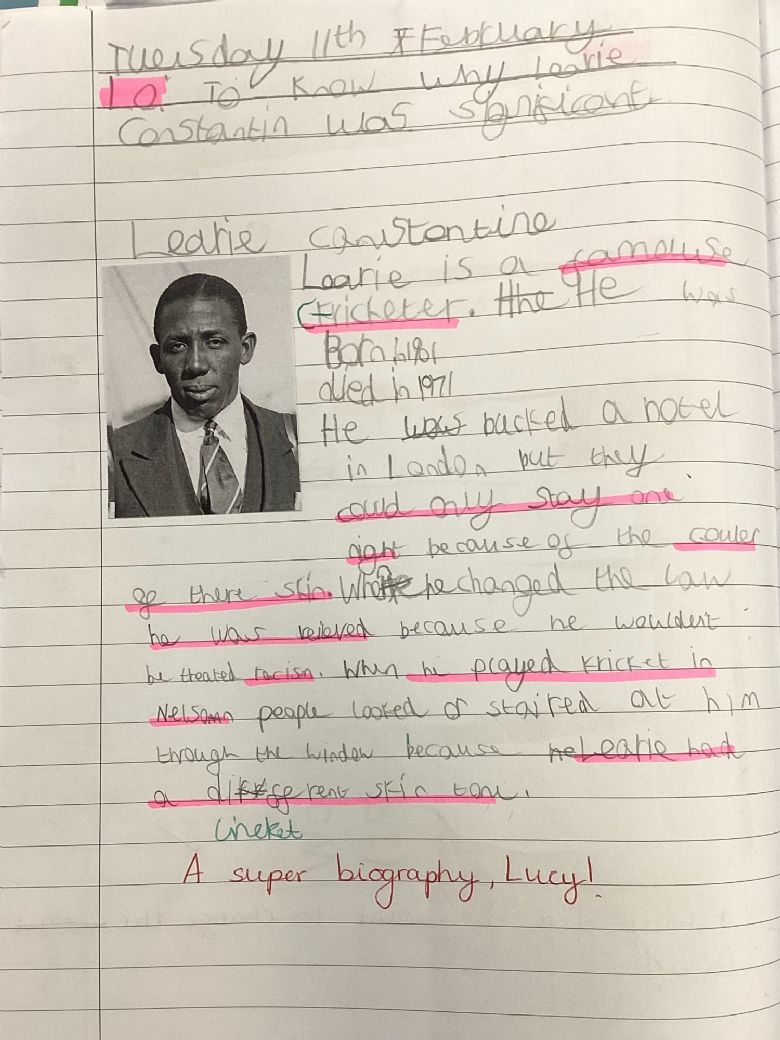 Tuesday 11th February
Lo: To know why Learie
Constantin was significant
Learie constontine
Learie is a famouse
Cricketer. He was
Born in 1961
died in 1971
He was bucked a hotel
in London but they
could only stay one
night because of the couler
of there skin. When he changed the law
he was reieved because he wouldent
be treated racism. When he played kricket in
Nelson people looked or staired at him
through the window because Learie had
a different skin tone.
Cricket
A super biography, Lucy!